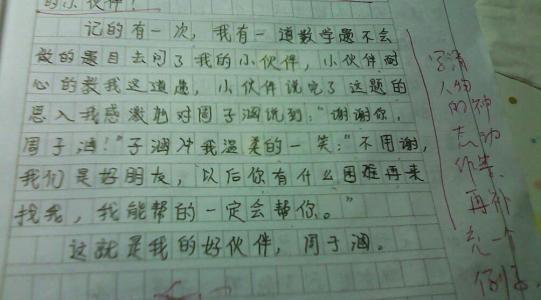 的小伙伴！
记的有一次，我有一道数学题不会
做的题目去问了我的小伙伴，小伙伴耐
心的教我这道题，小伙伴说完了这题的
思入我感激的对周子涵说到："谢谢你，
周子涵！"子涵冲我温柔的一笑："不用谢，
我们是好朋友，以后你有什么困难再来
找我，我能帮的一定会帮你。"
这就是我的好伙伴，周子涵。
写清
人物
的神
态动
作等
再补
充一个
例子